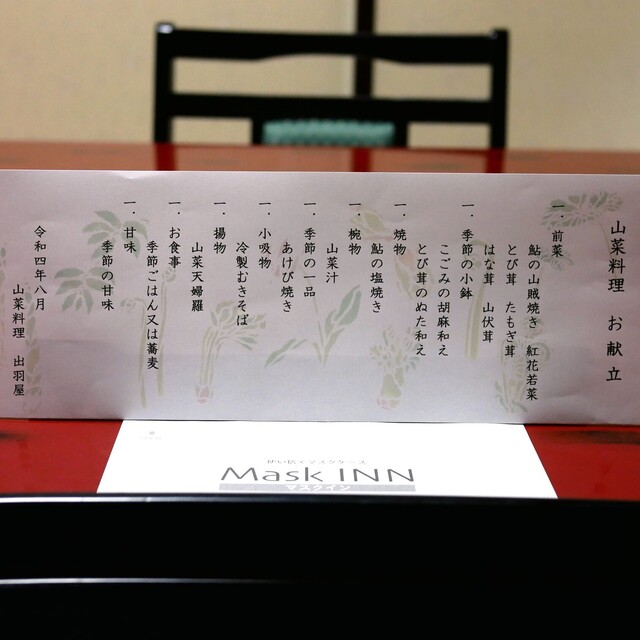 山菜料理 お献立
一、前菜
鮎の山賊焼き 紅花若菜
とび茸 たもぎ茸
はな茸 山伏茸
一、季節の小鉢
こごみの胡麻和え
とび茸のぬた和え
一、焼物
鮎の塩焼き
一、椀物
山菜汁
一、季節の一品
あけび焼き
一、小吸物
冷製むきそば
一、揚物
山菜天婦羅
一、お食事
季節ごはん又は蕎麦
一、甘味
季節の甘味
令和四年八月
山菜料理 出羽屋
使い広くマスクケース
Mask INN
マスクイン